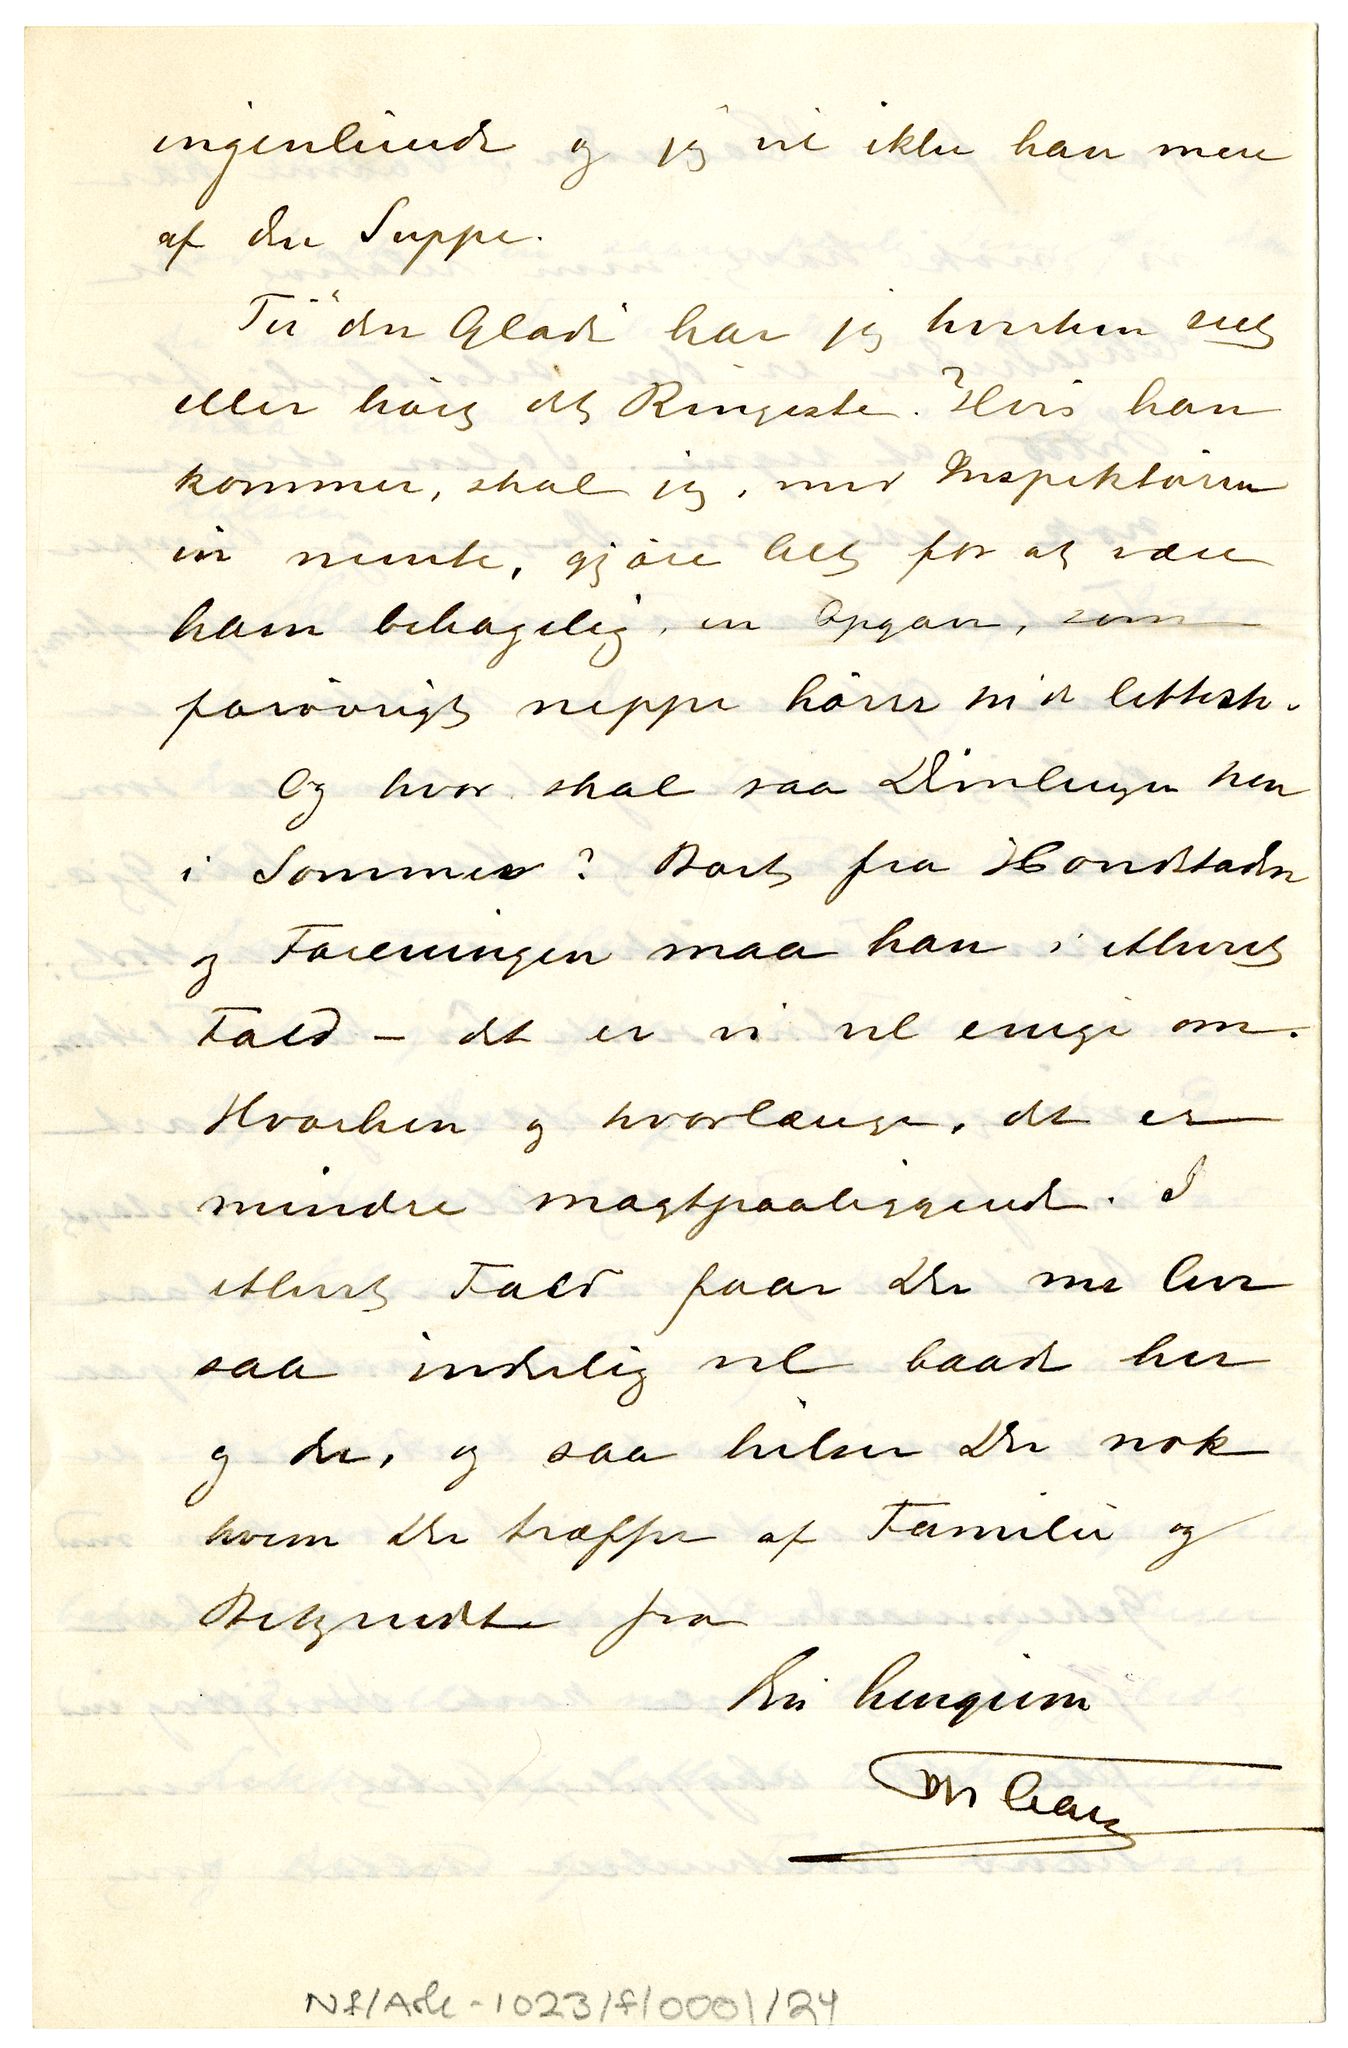 ingenlunde og jeg vil ikke have mere
af den Suppe.
Til "den Glade" har jeg hverken seet
eller hört det Ringeste. Hvis han
kommer, skal jeg, med Inspektören
in mente, gjöre Alt for at være
ham behagelig, en Opgave, som
forövrigt neppe hörer til de letteste.
Og hvor skal saa hen
i Sommer? Bort fra Hovedstaden
og Foreningen maa han i ethvert
Fald – det er vi vel enige om.
Hvorhen og hvorlænge, det er
mindre magtpaaliggende. I
ethvert Fald faar De me leve
saa inderlig vel baade her
og der, og saa hilser De nok
hvem De træffer af Familie og
Bekjendte fra
Deres hengivne
Nf/Ark-1023/f/0001/24